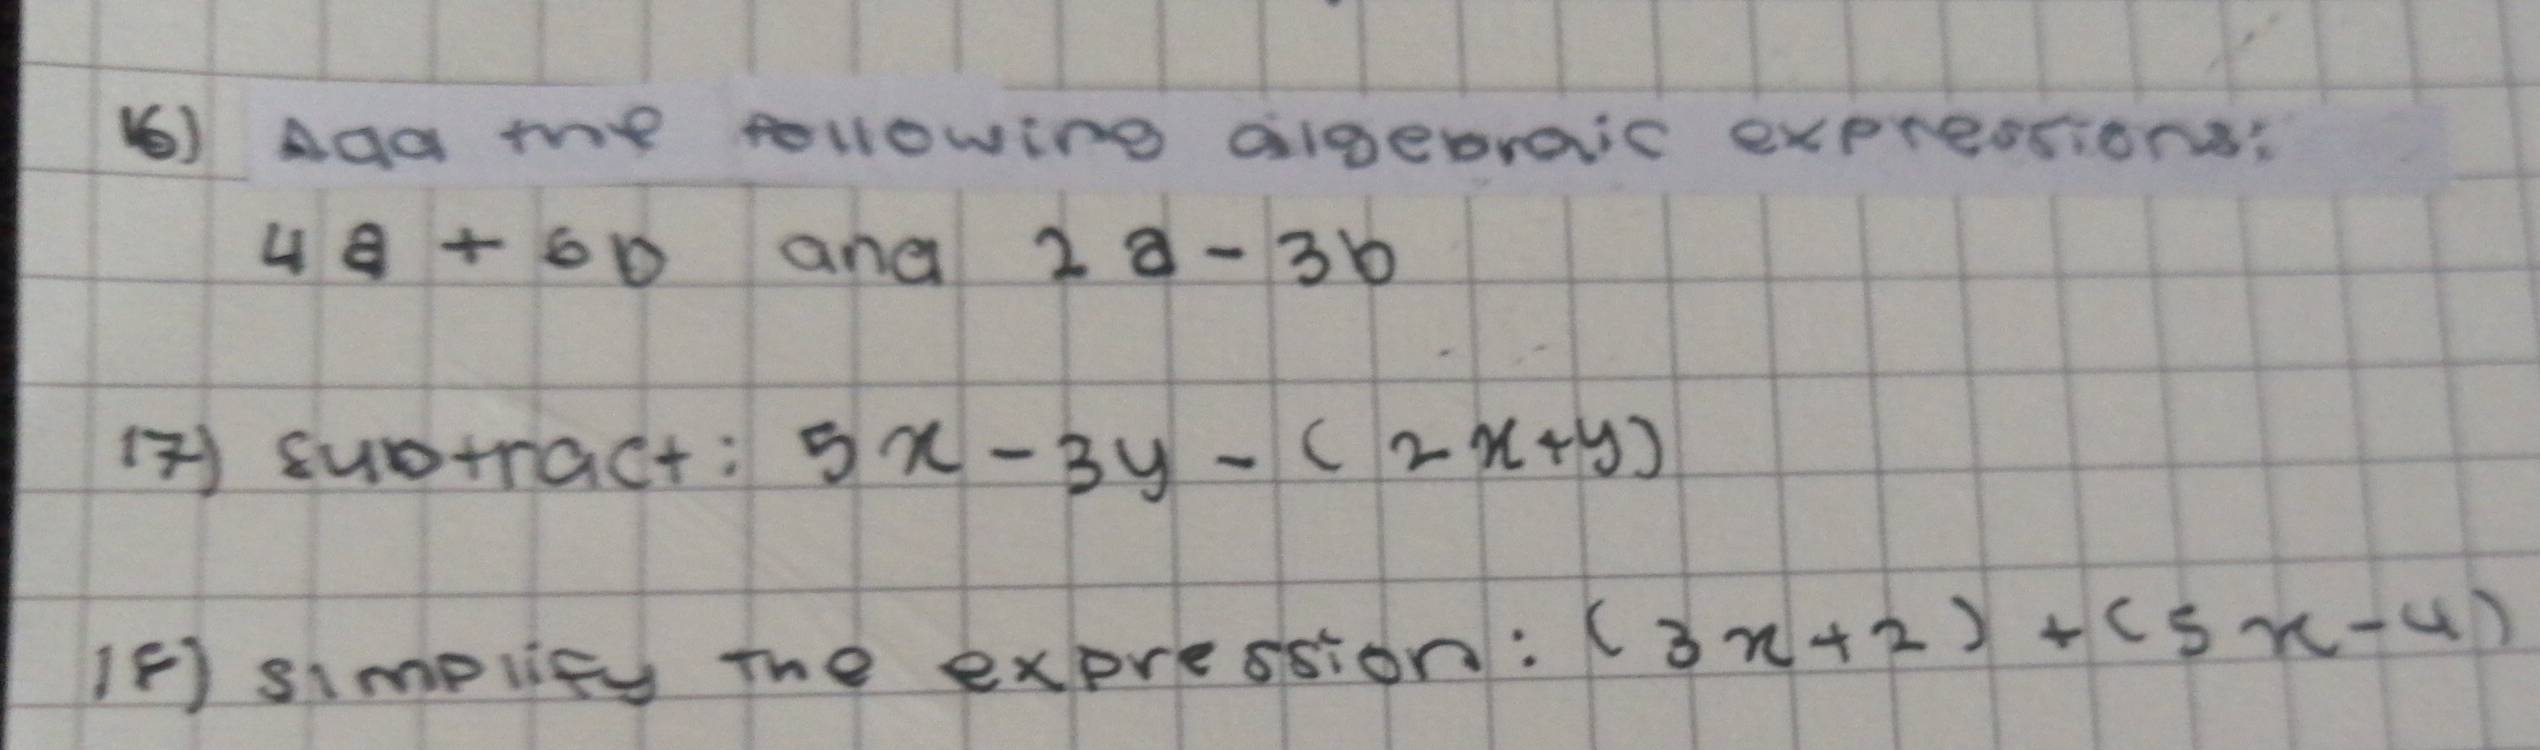 16) Add the following algebraic expressions:
4a + 6b and 2a - 3b
17) Subtract: 5x - 3y - (2x+y)
18) Simplify the expression: (3x+2) + (5x-4)